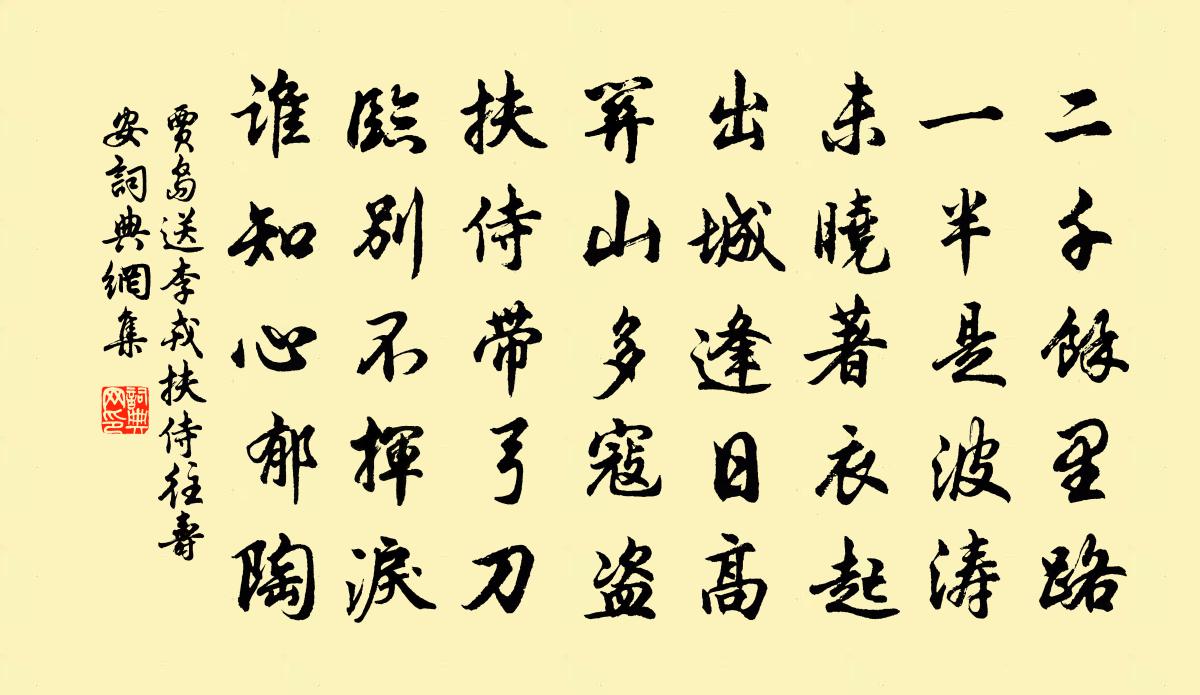 二千餘里路
一半是波濤
未曉著衣起
出城逢日高
關山多寇盗
扶侍帶弓刀
臨別不揮淚
誰知心郁陶
賈島送李戎扶侍往壽
安詞典網集
詞典
网印